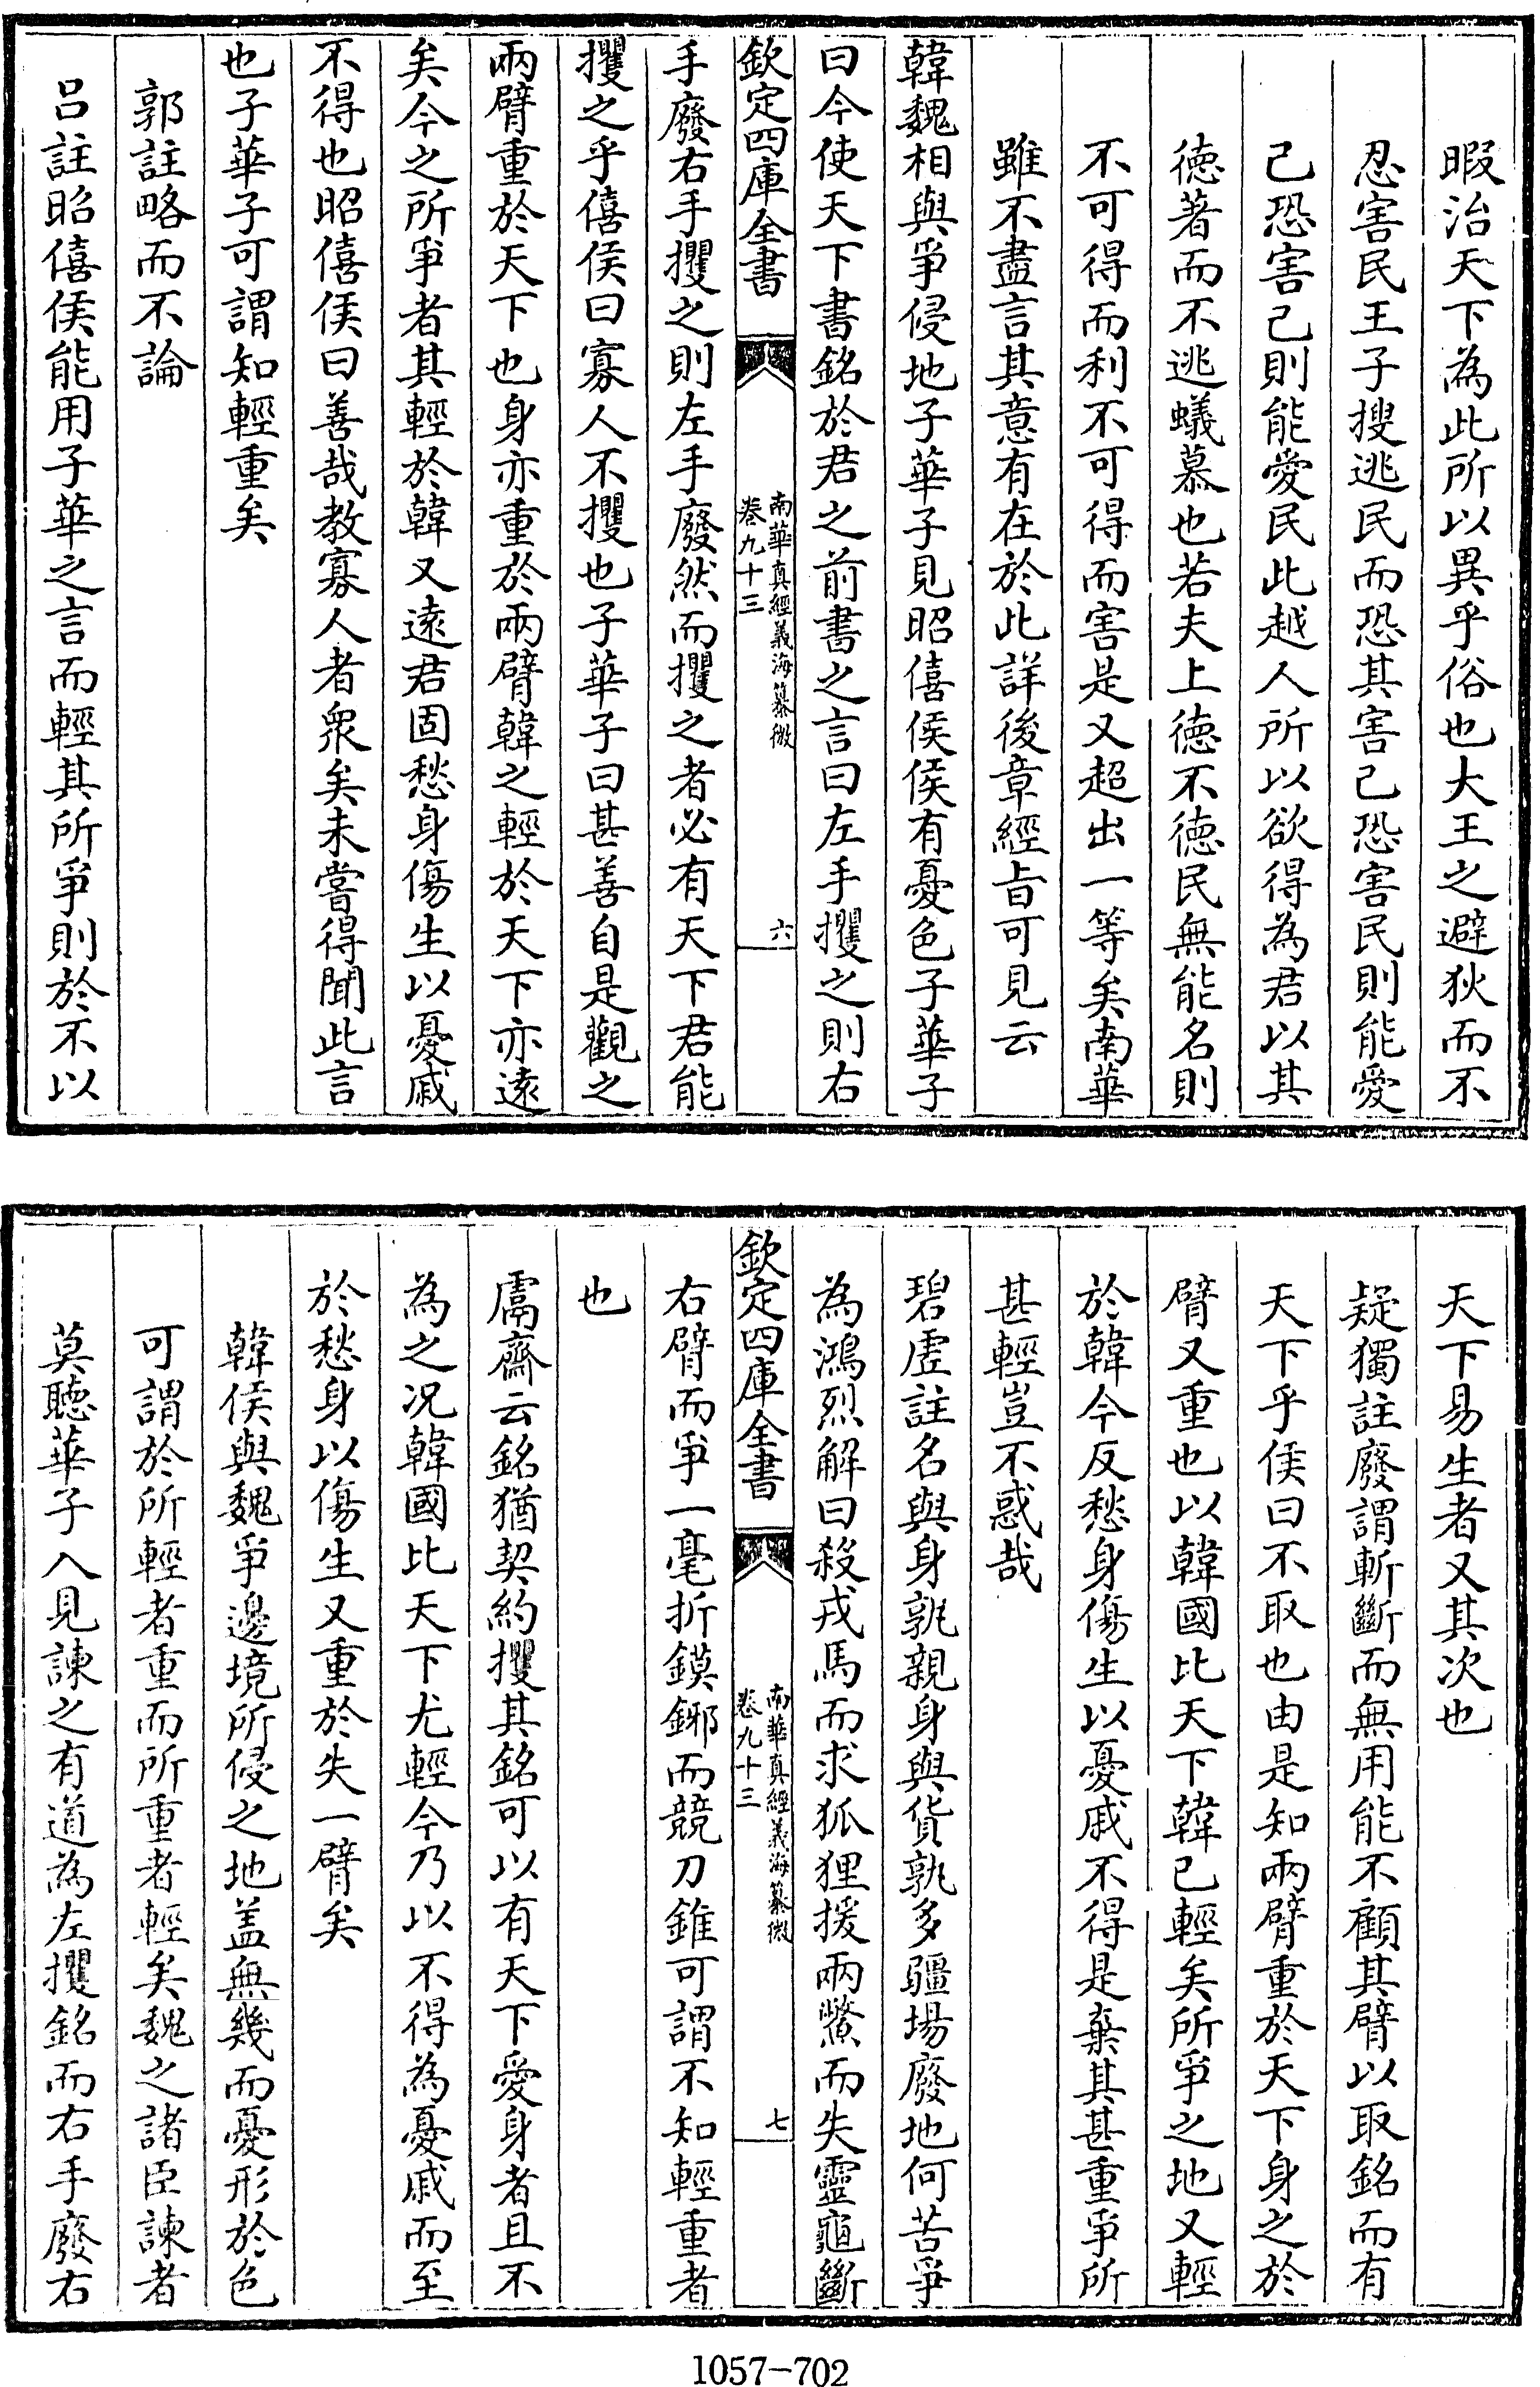 暇治天下為此所以異乎俗也大王之避狄而不
忍害民王子搜逃民而恐其害己恐害民則能愛
己恐害己則能愛民此越人所以欲得為君以其
徳著而不逃蟻慕也若夫上徳不徳民無能名則
不可得而利不可得而害是又超出一等矣南華
雖不盡言其意有在於此詳後章經旨可見云
韓魏相與爭侵地子華子見昭僖侯侯有憂色子華子
曰今使天下書銘於君之前書之言曰左手攫之則右
欽定四庫全書
南華真經義海纂微
卷九十三
六
手廢右手攫之則左手廢然而攫之者必有天下君能
攫之乎僖侯曰寡人不攫也子華子曰甚善自是觀之
兩臂重於天下也身亦重於兩臂韓之輕於天下亦遠
矣今之所爭者其輕於韓又遠君固愁身傷生以憂戚
不得也昭僖侯曰善哉教寡人者衆矣未嘗得聞此言
也子華子可謂知輕重矣
郭註略而不論
呂註昭僖侯能用子華之言而輕其所爭則於不以
天下易生者又其次也
疑獨註廢謂斬斷而無用能不顧其臂以取銘而有
天下乎侯曰不取也由是知兩臂重於天下身之於
臂又重也以韓國比天下韓已輕矣所爭之地又輕
於韓今反愁身傷生以憂戚不得是棄其甚重爭所
甚輕豈不惑哉
碧虛註名與身孰親身與貨孰多疆場廢地何苦爭
為鴻烈解曰殺戎馬而求狐狸援兩鱉而失靈龜斷
欽定四庫全書
南華真經義海纂微
卷九十三
七
右臂而爭一毫折鏌鋣而競刀錐可謂不知輕重者
也
鬳齋云銘猶契約攫其銘可以有天下愛身者且不
為之况韓國比天下尤輕今乃以不得為憂戚而至
於愁身以傷生又重於失一臂矣
韓侯與魏爭邊境所侵之地盖無幾而憂形於色
可謂於所輕者重而所重者輕矣魏之諸臣諫者
莫聽華子入見諫之有道為左攫銘而右手廢右
1057-702